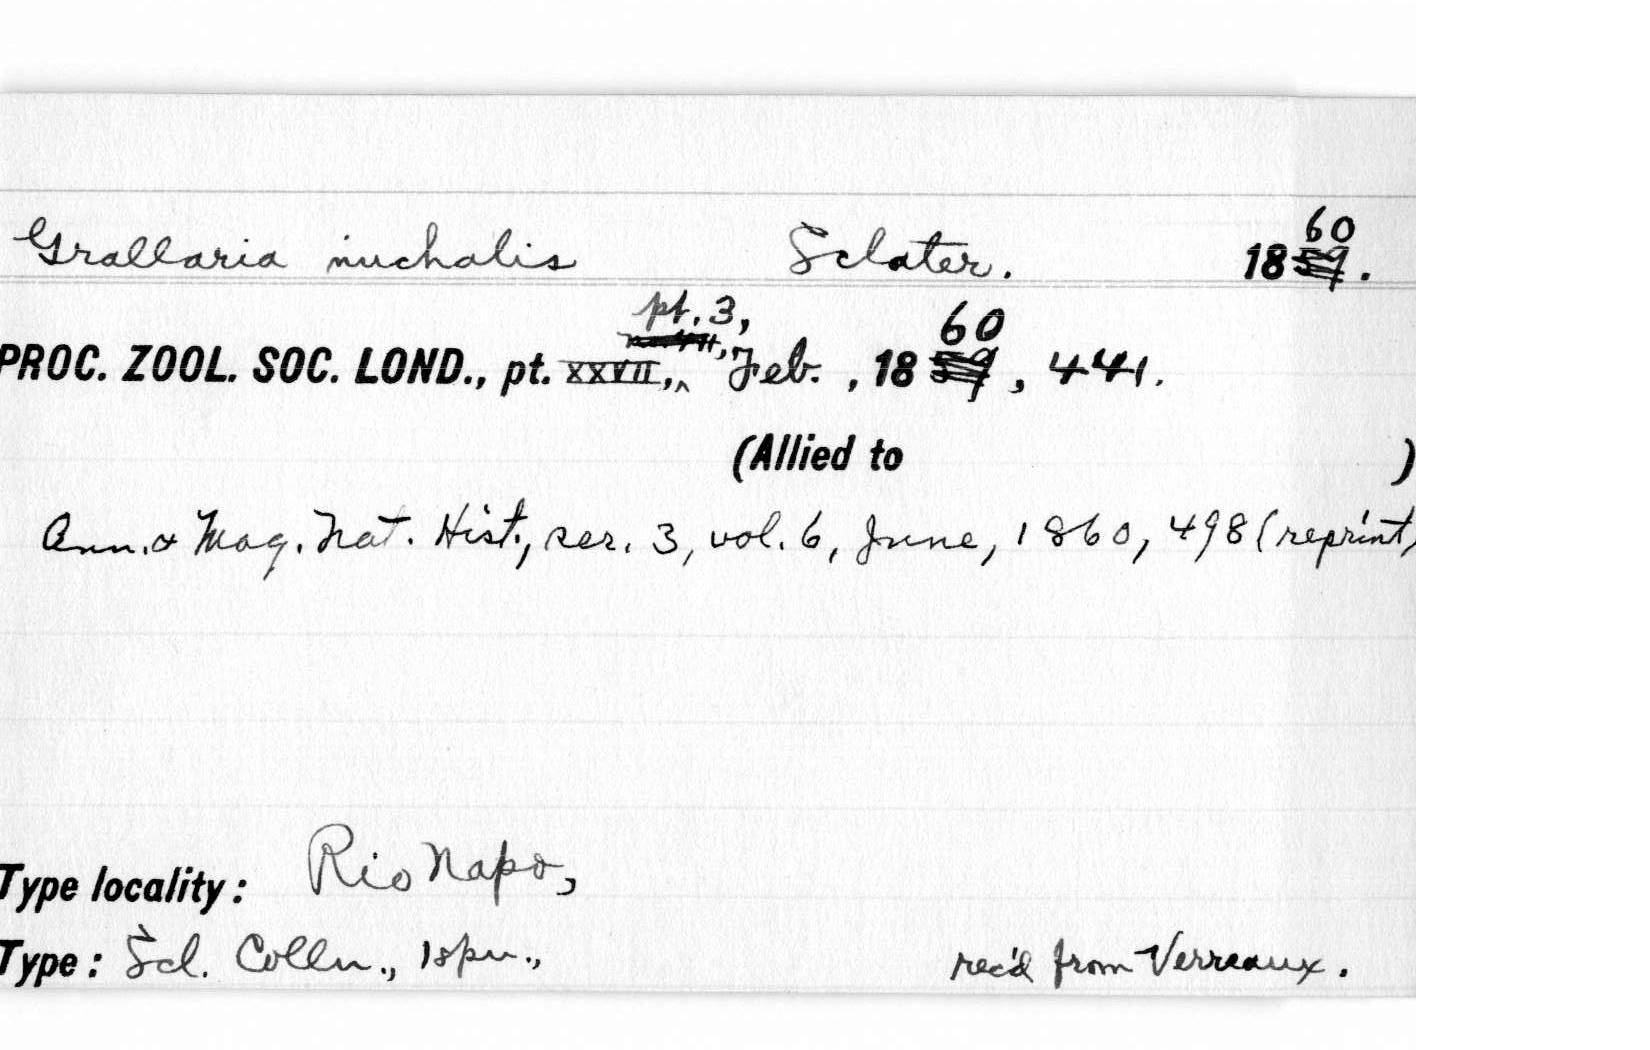 Grallaria nuchalis Sclater. 1860.
PROC. ZOOL. SOC. LOND., pt. XXVII, pt. 3, Feb., 1860, 441.
(Allied to )
Ann. & Mag. Nat. Hist., ser. 3, vol. 6, June, 1860, 498 (reprint)
Type locality: Rio Napo,
Type: Scl. Colln., 1 spn., rec'd from Verreaux.